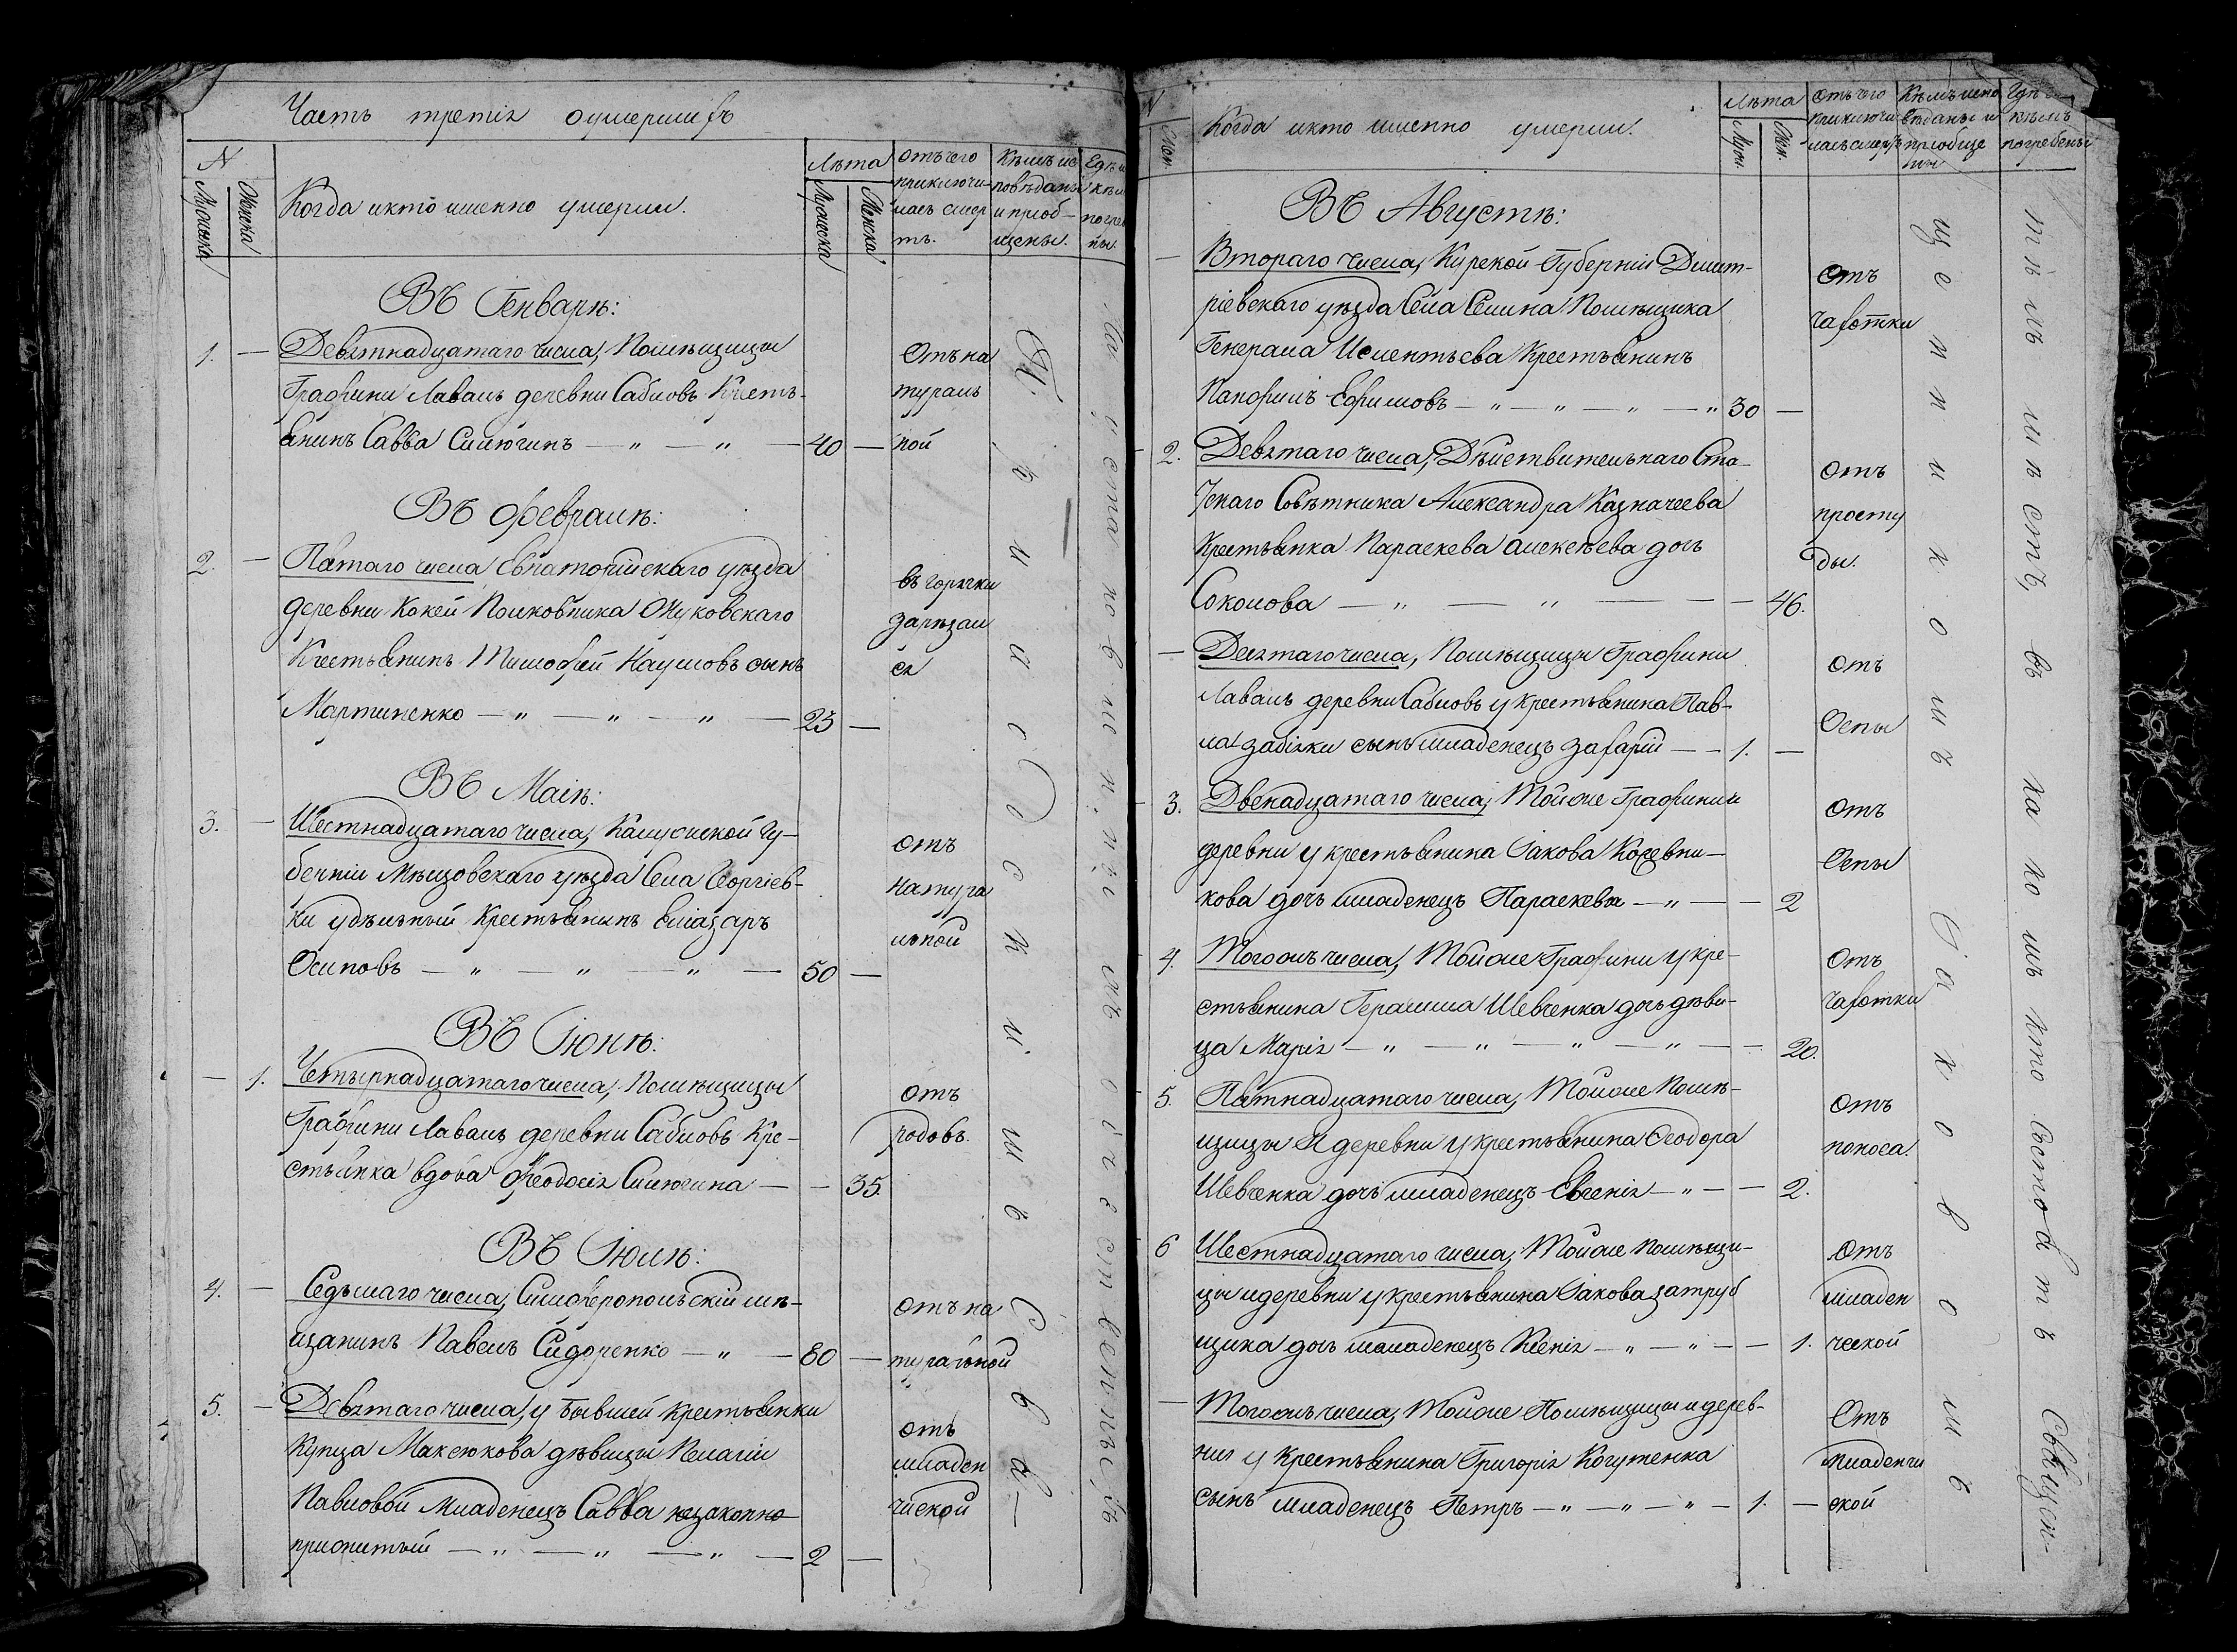 Часть третія оумершихъ
N
Мужеска
Женска
Когда икто именно умерли.
Лѣта
Мужеска
Женска
Отъ чего
приключи-
лась смер
ть.
Кѣмъ ис
повѣданы
и приоб-
щены.
Гдѣ и
кѣм
погребе
ны.
ВЪ Генварѣ:
1. — Девятнадцатаго числа, Помѣщицы
Графини Лаваль деревни Сабловъ Кресть-
янинъ Савва Смлюгинъ — „ — „ — 40 —
Отъ на
тураль
ной
ВЪ Февралѣ:
2. — Пятаго числа Евпаторійскаго уѣзда
деревни Кокей Полковника Жуковскаго
Крестьянинъ Тимофей Наумовъ сынъ
Мартиненко — „ — „ — „ — 23 —
въ горячки
зарѣзал
ся
ВЪ Маіѣ:
3. — Шестнадцатаго числа, Калужской Гу-
берніи Мещовскаго уѣзда Села Георгіев-
ки удѣльный Крестьянинъ Елiазаръ
Осиповъ — „ — „ — „ — 50 —
отъ
натура
льной
ВЪ Іюнѣ:
— 1. Четырнадцатаго числа, Помѣщицы
Графини Лаваль деревни Сабловъ Кре-
стьянка вдова Феодосія Смлюгина — — 35.
отъ
родовъ.
ВЪ Іюлѣ:
4. — Седьмаго числа, Симферопольскій мѣ-
щанинъ Павелъ Сидоренко — „ — 80 —
отъ на
туральной
5. — Девятаго числа, у бывшей крестьянки
Купца Максюкова дѣвицы Пелагіи
Павловой Младенецъ Савва незаконно
прижитый — „ — „ — „ — 2 —
отъ
младен
ческой
N
Жен.
Когда икто именно умерли.
Лѣта
Муж.
Жен.
Отъ чего
приключи
лась смерть
Кѣмъ испо
вѣданы и
приобще
ны
Гдѣ и
кѣмъ
погребены
ВЪ Августѣ:
— Втораго числа, Курской Губерніи Дмит-
ріевскаго уѣзда Села Селина Помѣщика
Генерала Исленьтьева Крестьянинъ
Панфилъ Ефимовъ — „ — „ — „ — „ 30 —
Отъ
чахотки
2. Девятаго числа, Дѣйствительнаго Ста-
Тскаго Совѣтника Александра Казначеева
Крестьянка Параскева алексѣева дочь
Соколова — „ — „ — — 46.
отъ
просту
ды.
— Десятаго числа, Помѣщицы Графини
Лаваль деревни Сабловъ у крестьянина Пав-
ла забіяки сынъ младенецъ Захарій — — 1. —
отъ
Оспы
3. Двенадцатаго числа, Тойже Графини и
деревни у крестьянина Іакова Кожевни-
кова дочь младенецъ Параскева — „ — — 2
отъ
Оспы
4. Тогожъ числа, Тойже Графини у кре-
стьянина Герасима Шевченка дочь дѣви-
ца Марія — „ — „ — „ — „ — 20.
Отъ
чахотки
5. Пятнадцатаго числа, Тойже Помѣ-
щицы И деревни у крестьянина Феодора
Шевченка дочь младенецъ Евгенія — „ — — 2.
отъ
поноса.
6 Шестнадцатаго числа, Тойже помѣщи-
цы и деревни у крестьянина Іакова затруб
щика дочь младенецъ Ксенія — „ — „ — — 1.
Отъ
младен
ческой
— Тогожъ числа, Тойже Помѣщицы и дерев-
ни у Крестьянина Григорія Когутенка
сынъ младенецъ Петръ — „ — „ — „ — 1. —
Отъ
младенче
ской
щенникомъ Іаковомъ
на комъ кто всподтъ Священ-